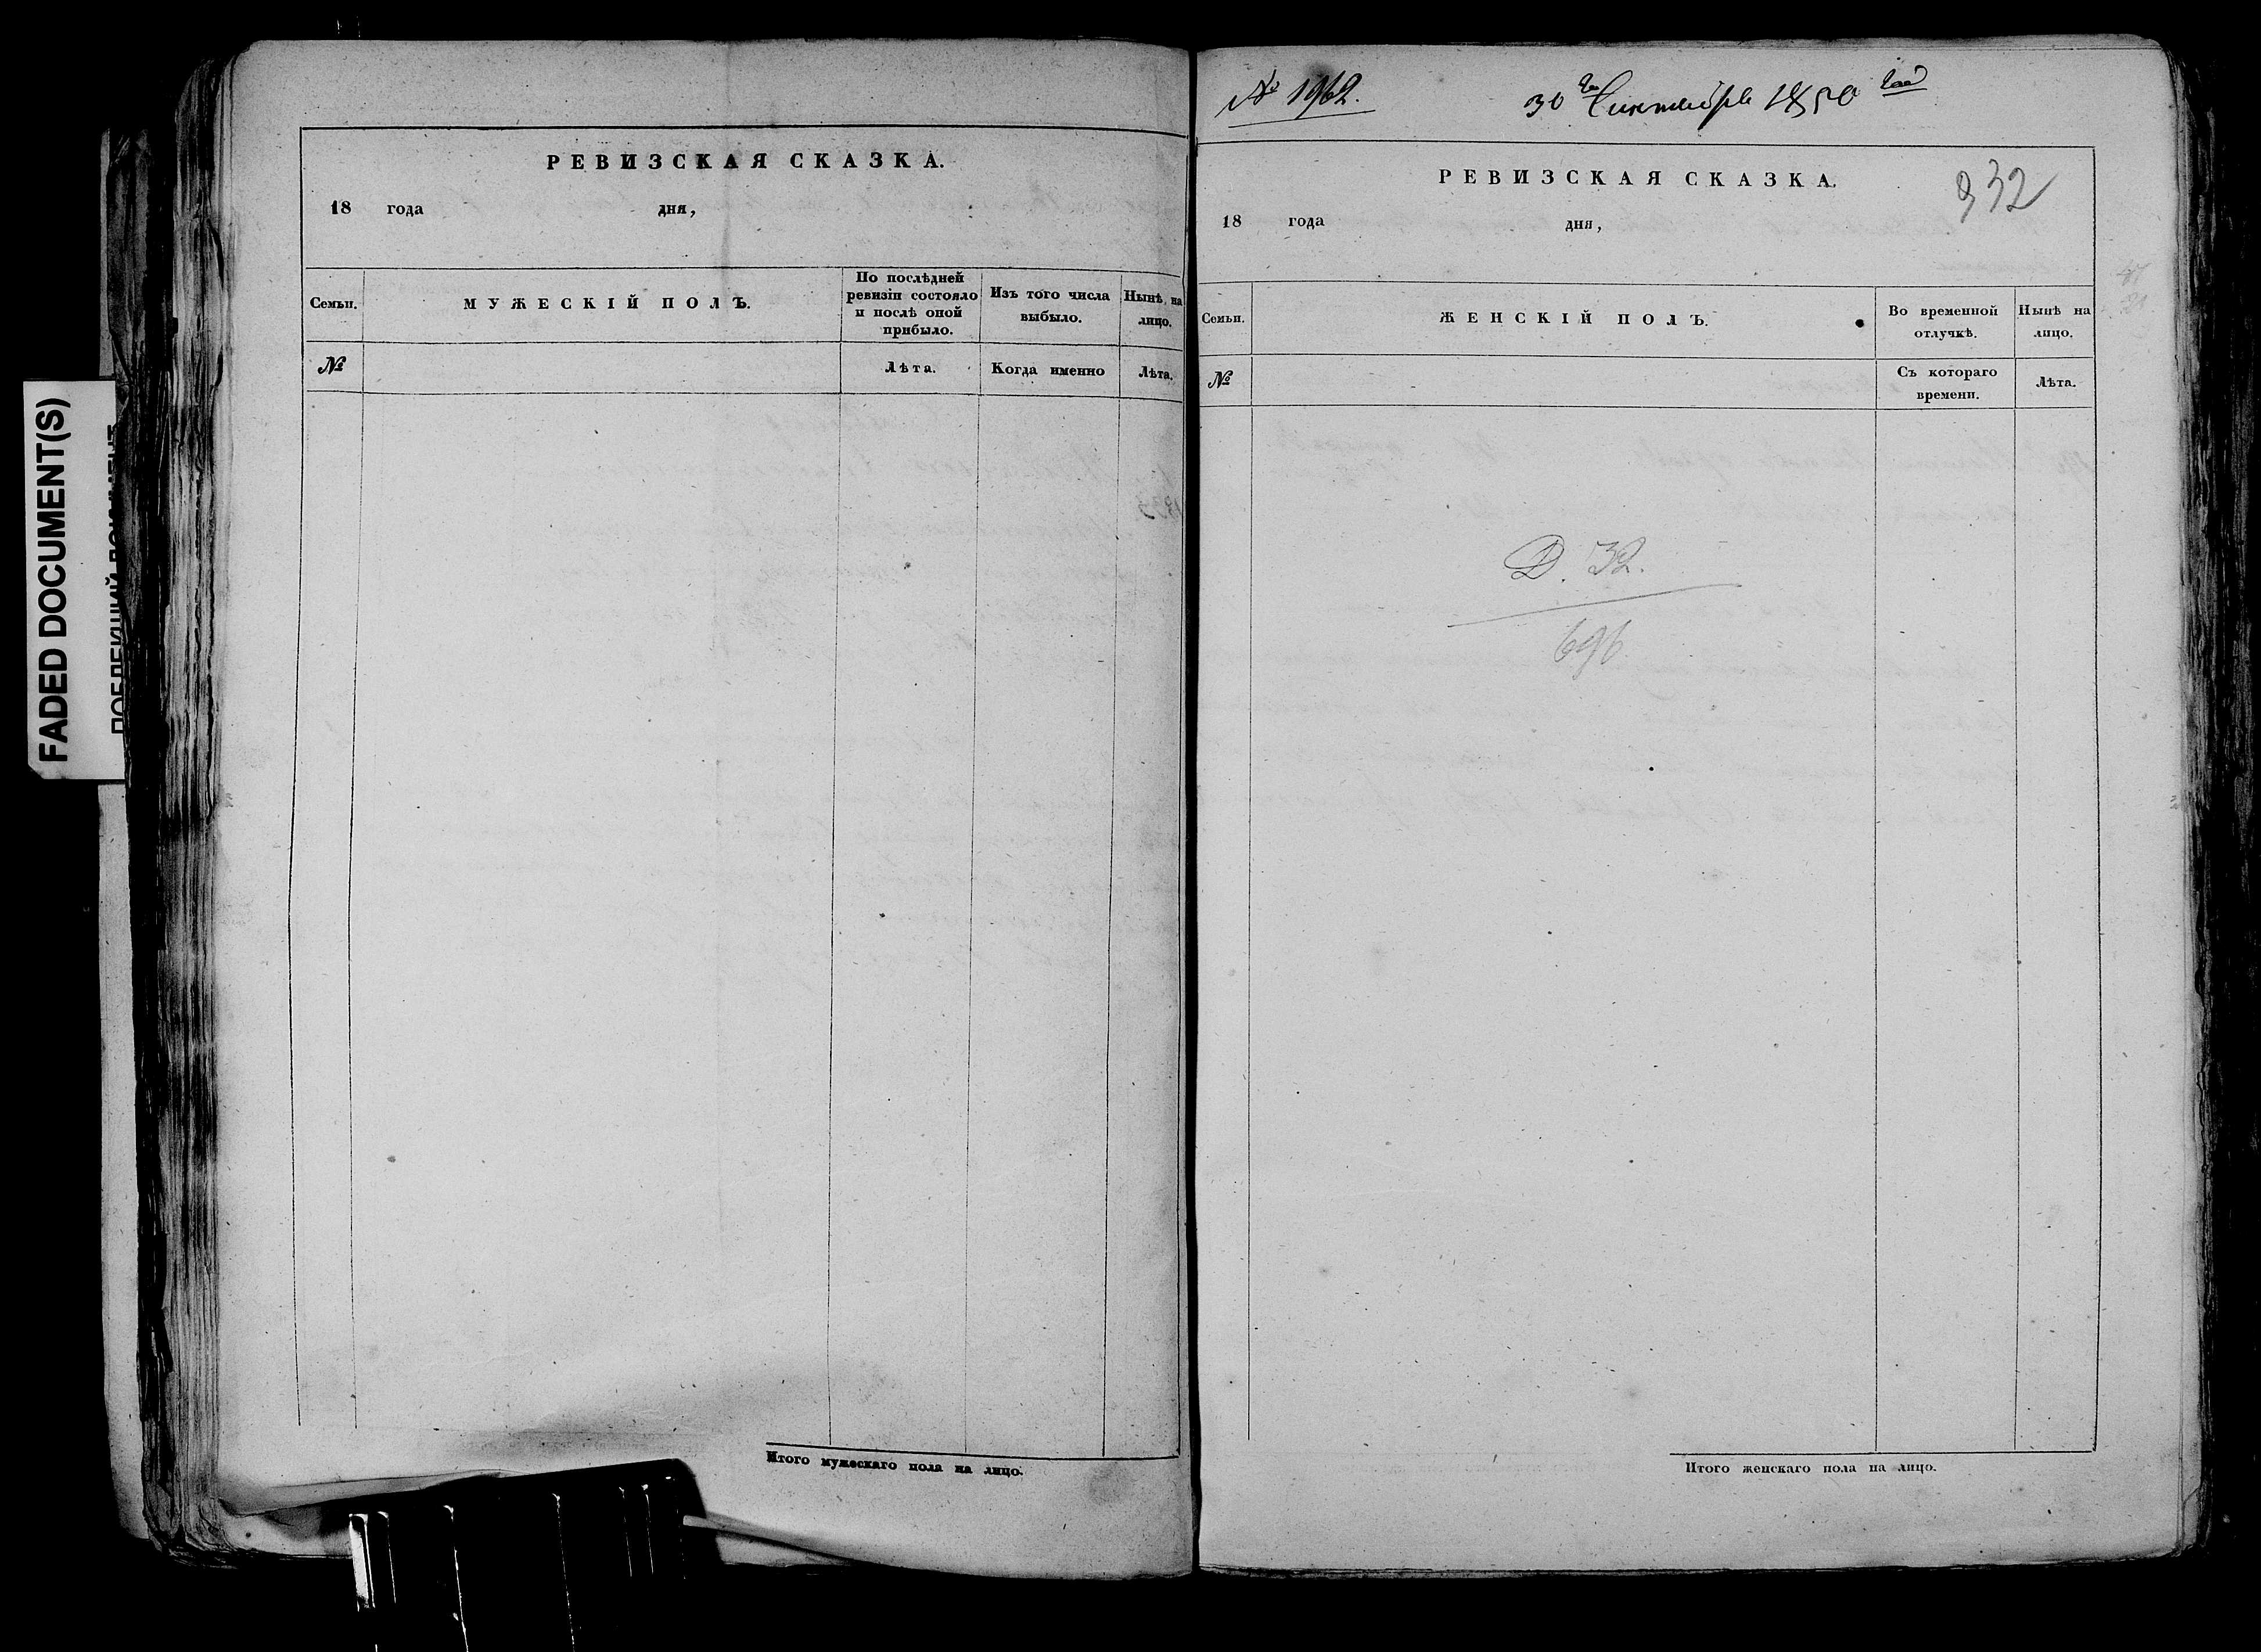 FADED DOCUMENT(S)
РЕВИЗСКАЯ СКАЗКА.
18 года дня,
Семьи. МУЖЕСКІЙ ПОЛЪ. По послѣдней ревизіи состояло и послѣ оной прибыло. Изъ того числа выбыло. Нынѣ на лицо.
№ Лѣта. Когда именно Лѣта.
Итого мужескаго пола на лицо.
№ 1962. 30го Сентября 1850 года
РЕВИЗСКАЯ СКАЗКА.
932
18 года дня,
Семьи. ЖЕНСКІЙ ПОЛЪ. Во временной отлучкѣ. Нынѣ на лицо.
№ Съ котораго времени. Лѣта.
Д. 32.
696
Итого женскаго пола на лицо.